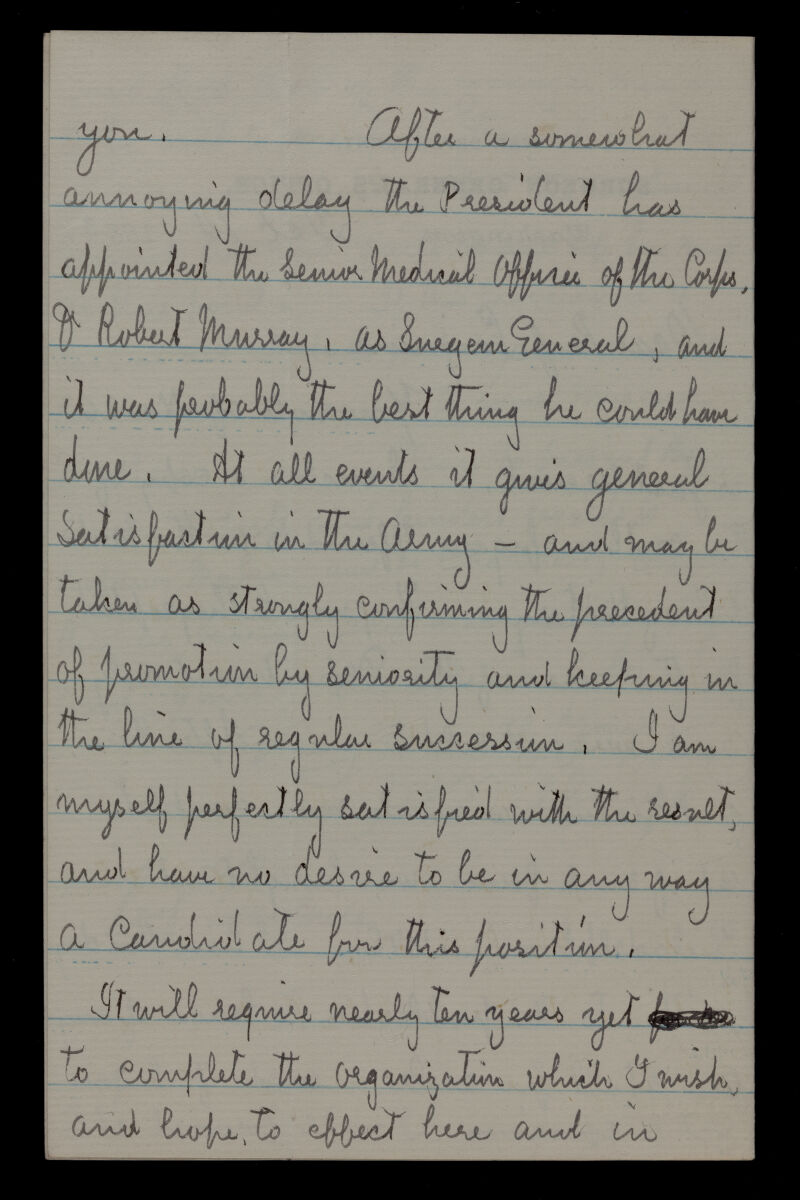 you. After a somewhat
annoying delay the President has
appointed the Senior Medical Officer of the Corps,
Dr Robert Murray, as Surgeon General, and
it was probably the best thing he could have
done. At all events it gives general
satisfaction in the Army — and may be
taken as strongly confirming the precedent
of promotion by seniority and keeping in
the line of regular succession. I am
myself perfectly satisfied with the result,
and have no desire to be in any way
a Candidate for this position.
It will require nearly ten years yet
to complete the organization which I wish,
and hope, to effect here and in